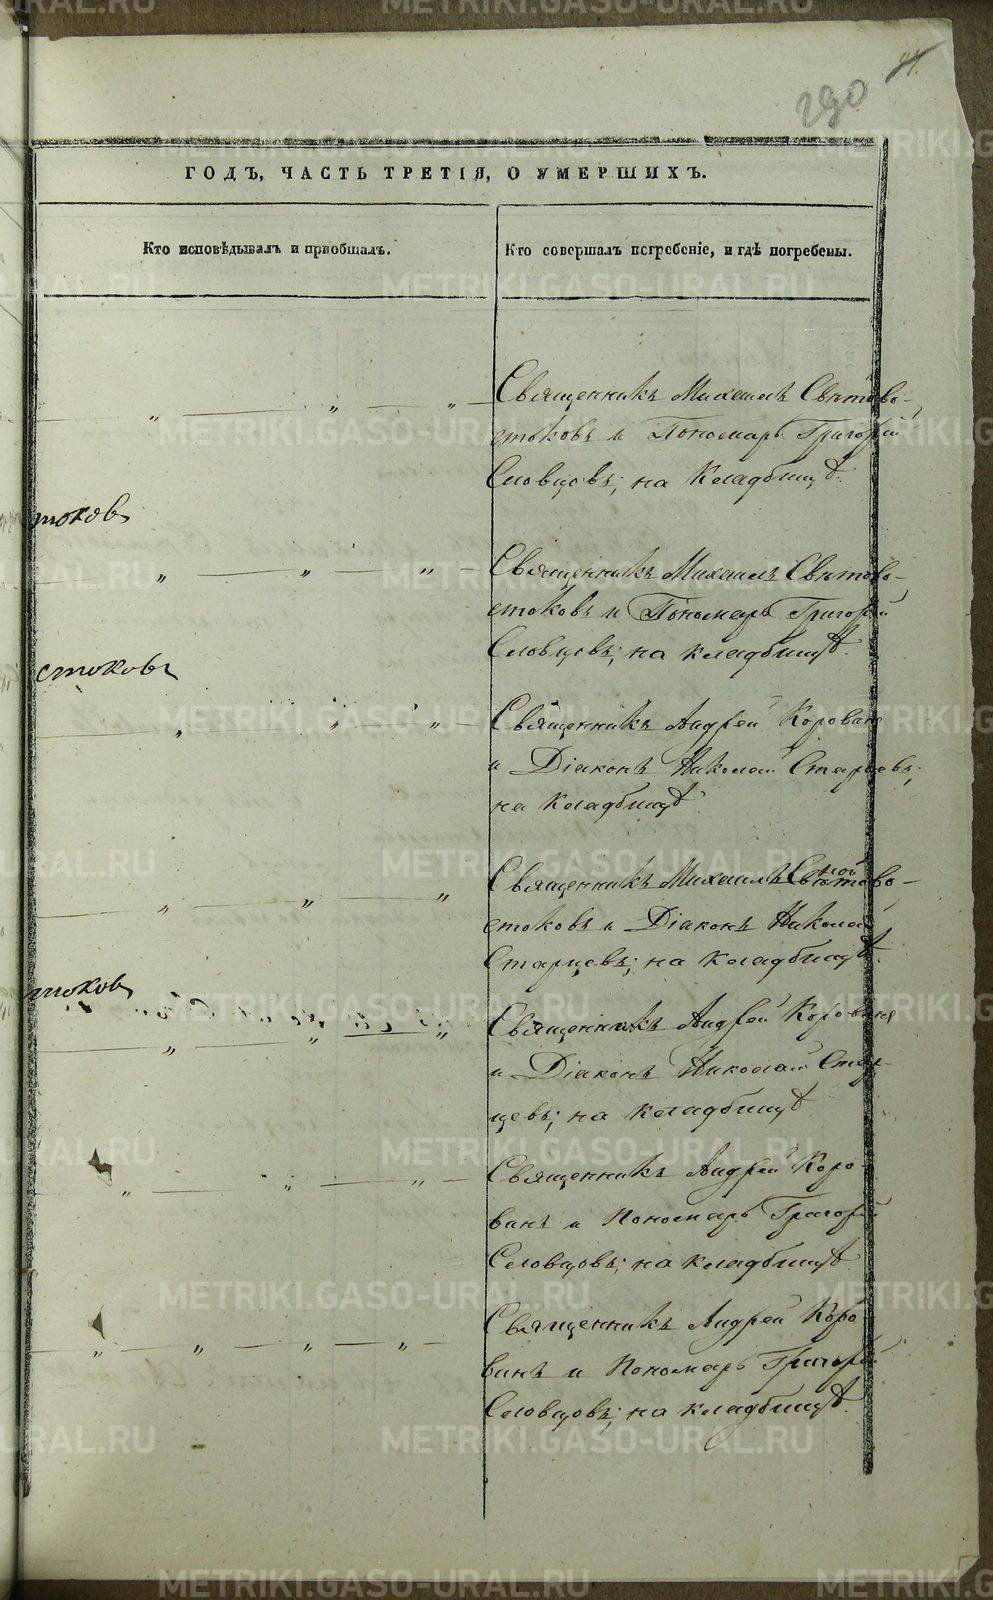 290
ГОДЪ, ЧАСТЬ ТРЕТІЯ, О УМЕРШИХЪ.
Кто исповѣдывалъ и пріобщалъ.
Кто совершалъ погребеніе, и гдѣ погребены.
Священникъ Михаилъ Свѣтово-
стоковъ и Пономарь Григорій
Словцовъ; на кладбищѣ.
токовъ
Священникъ Михаилъ Свѣтово-
стоковъ и Пономарь Григорій
Словцовъ; на кладбищѣ.
стоковъ
Священникъ Андрей Корована
и Діаконъ Николай Старцевъ;
на кладбищѣ
Священникъ Михаилъ Свѣтово-
стоковъ и Діаконъ Николай
Старцевъ; на кладбищѣ.
токовъ
Священникъ Андрей Корована
и Діаконъ Николай Стар-
цевъ; на кладбищѣ
Священникъ Андрей Коро-
ванъ и Пономарь Григорій
Словцовъ; на кладбищѣ
Священникъ Андрей Коро-
ванъ и Пономарь Григорій
Словцовъ; на кладбищѣ.
METRIKI.GASO-URAL.RU